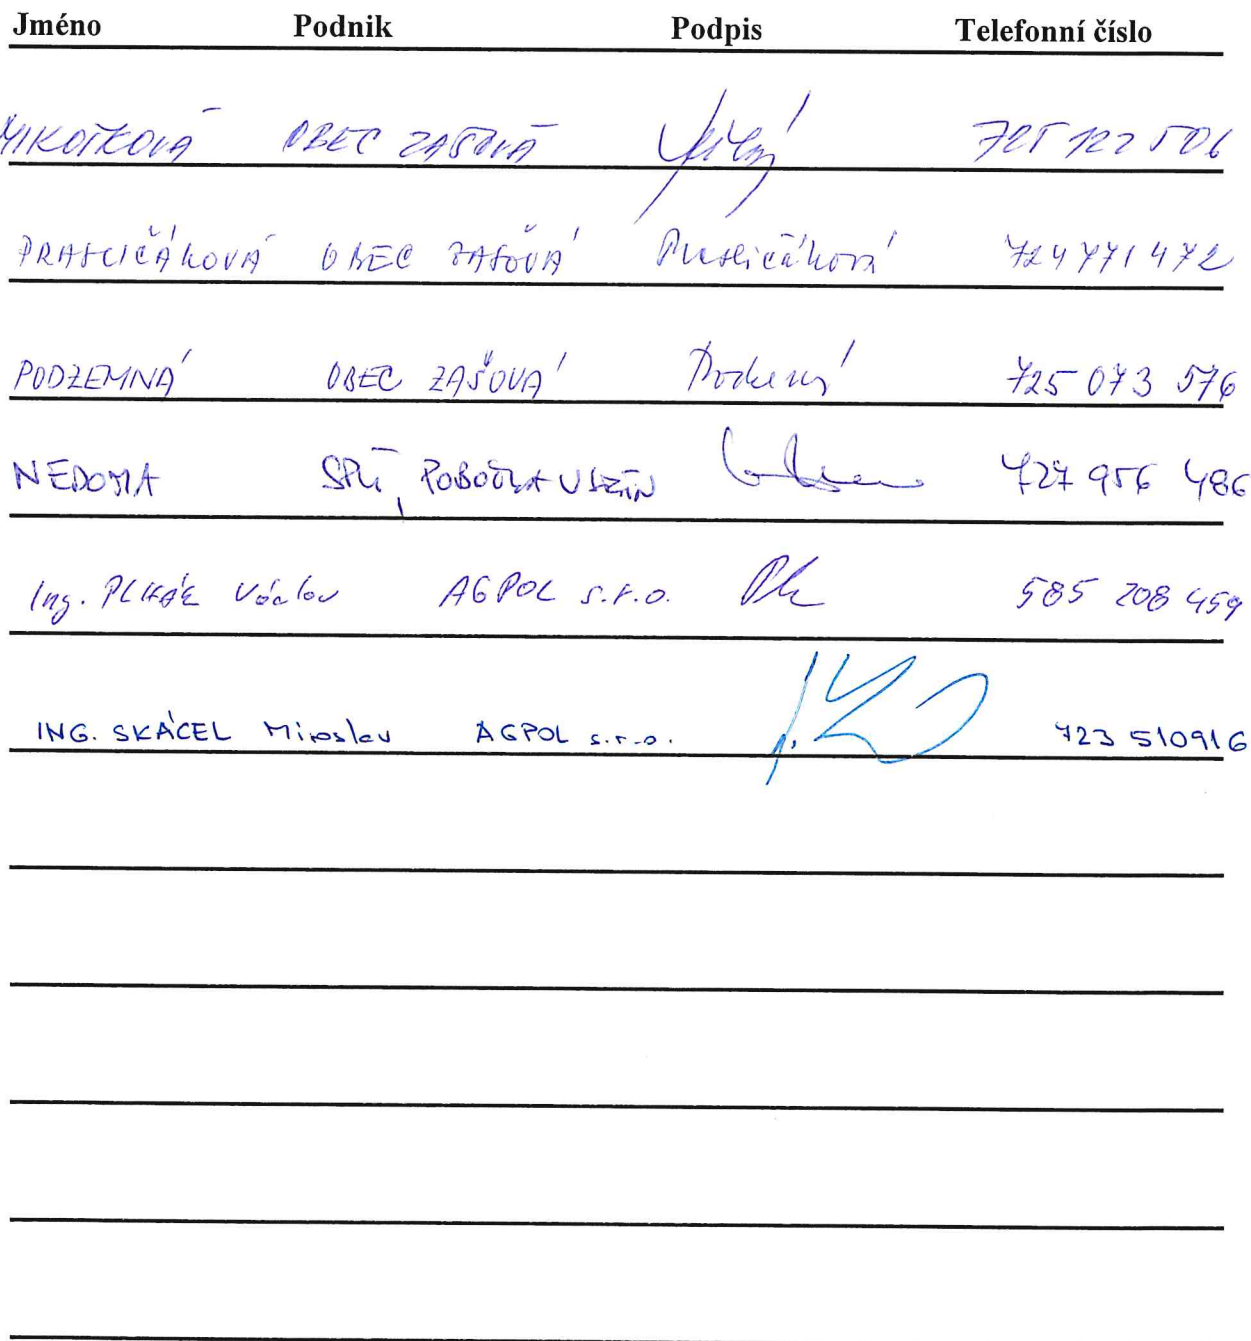 Jméno Podnik Podpis Telefonní číslo
OBEC ZAŠOVÁ 725 122 506
PRAŠLIČÁKOVÁ OBEC ZAŠOVÁ Prašličáková 724 771 472
PODZEMNÁ OBEC ZAŠOVÁ 725 073 576
NEDOMA SPÚ, POBOČKA VSETÍN 727 956 486
Ing. PLHÁK Václav AGPOL s.r.o. 585 208 459
ING. SKÁCEL Miroslav AGPOL s.r.o. 723 510916